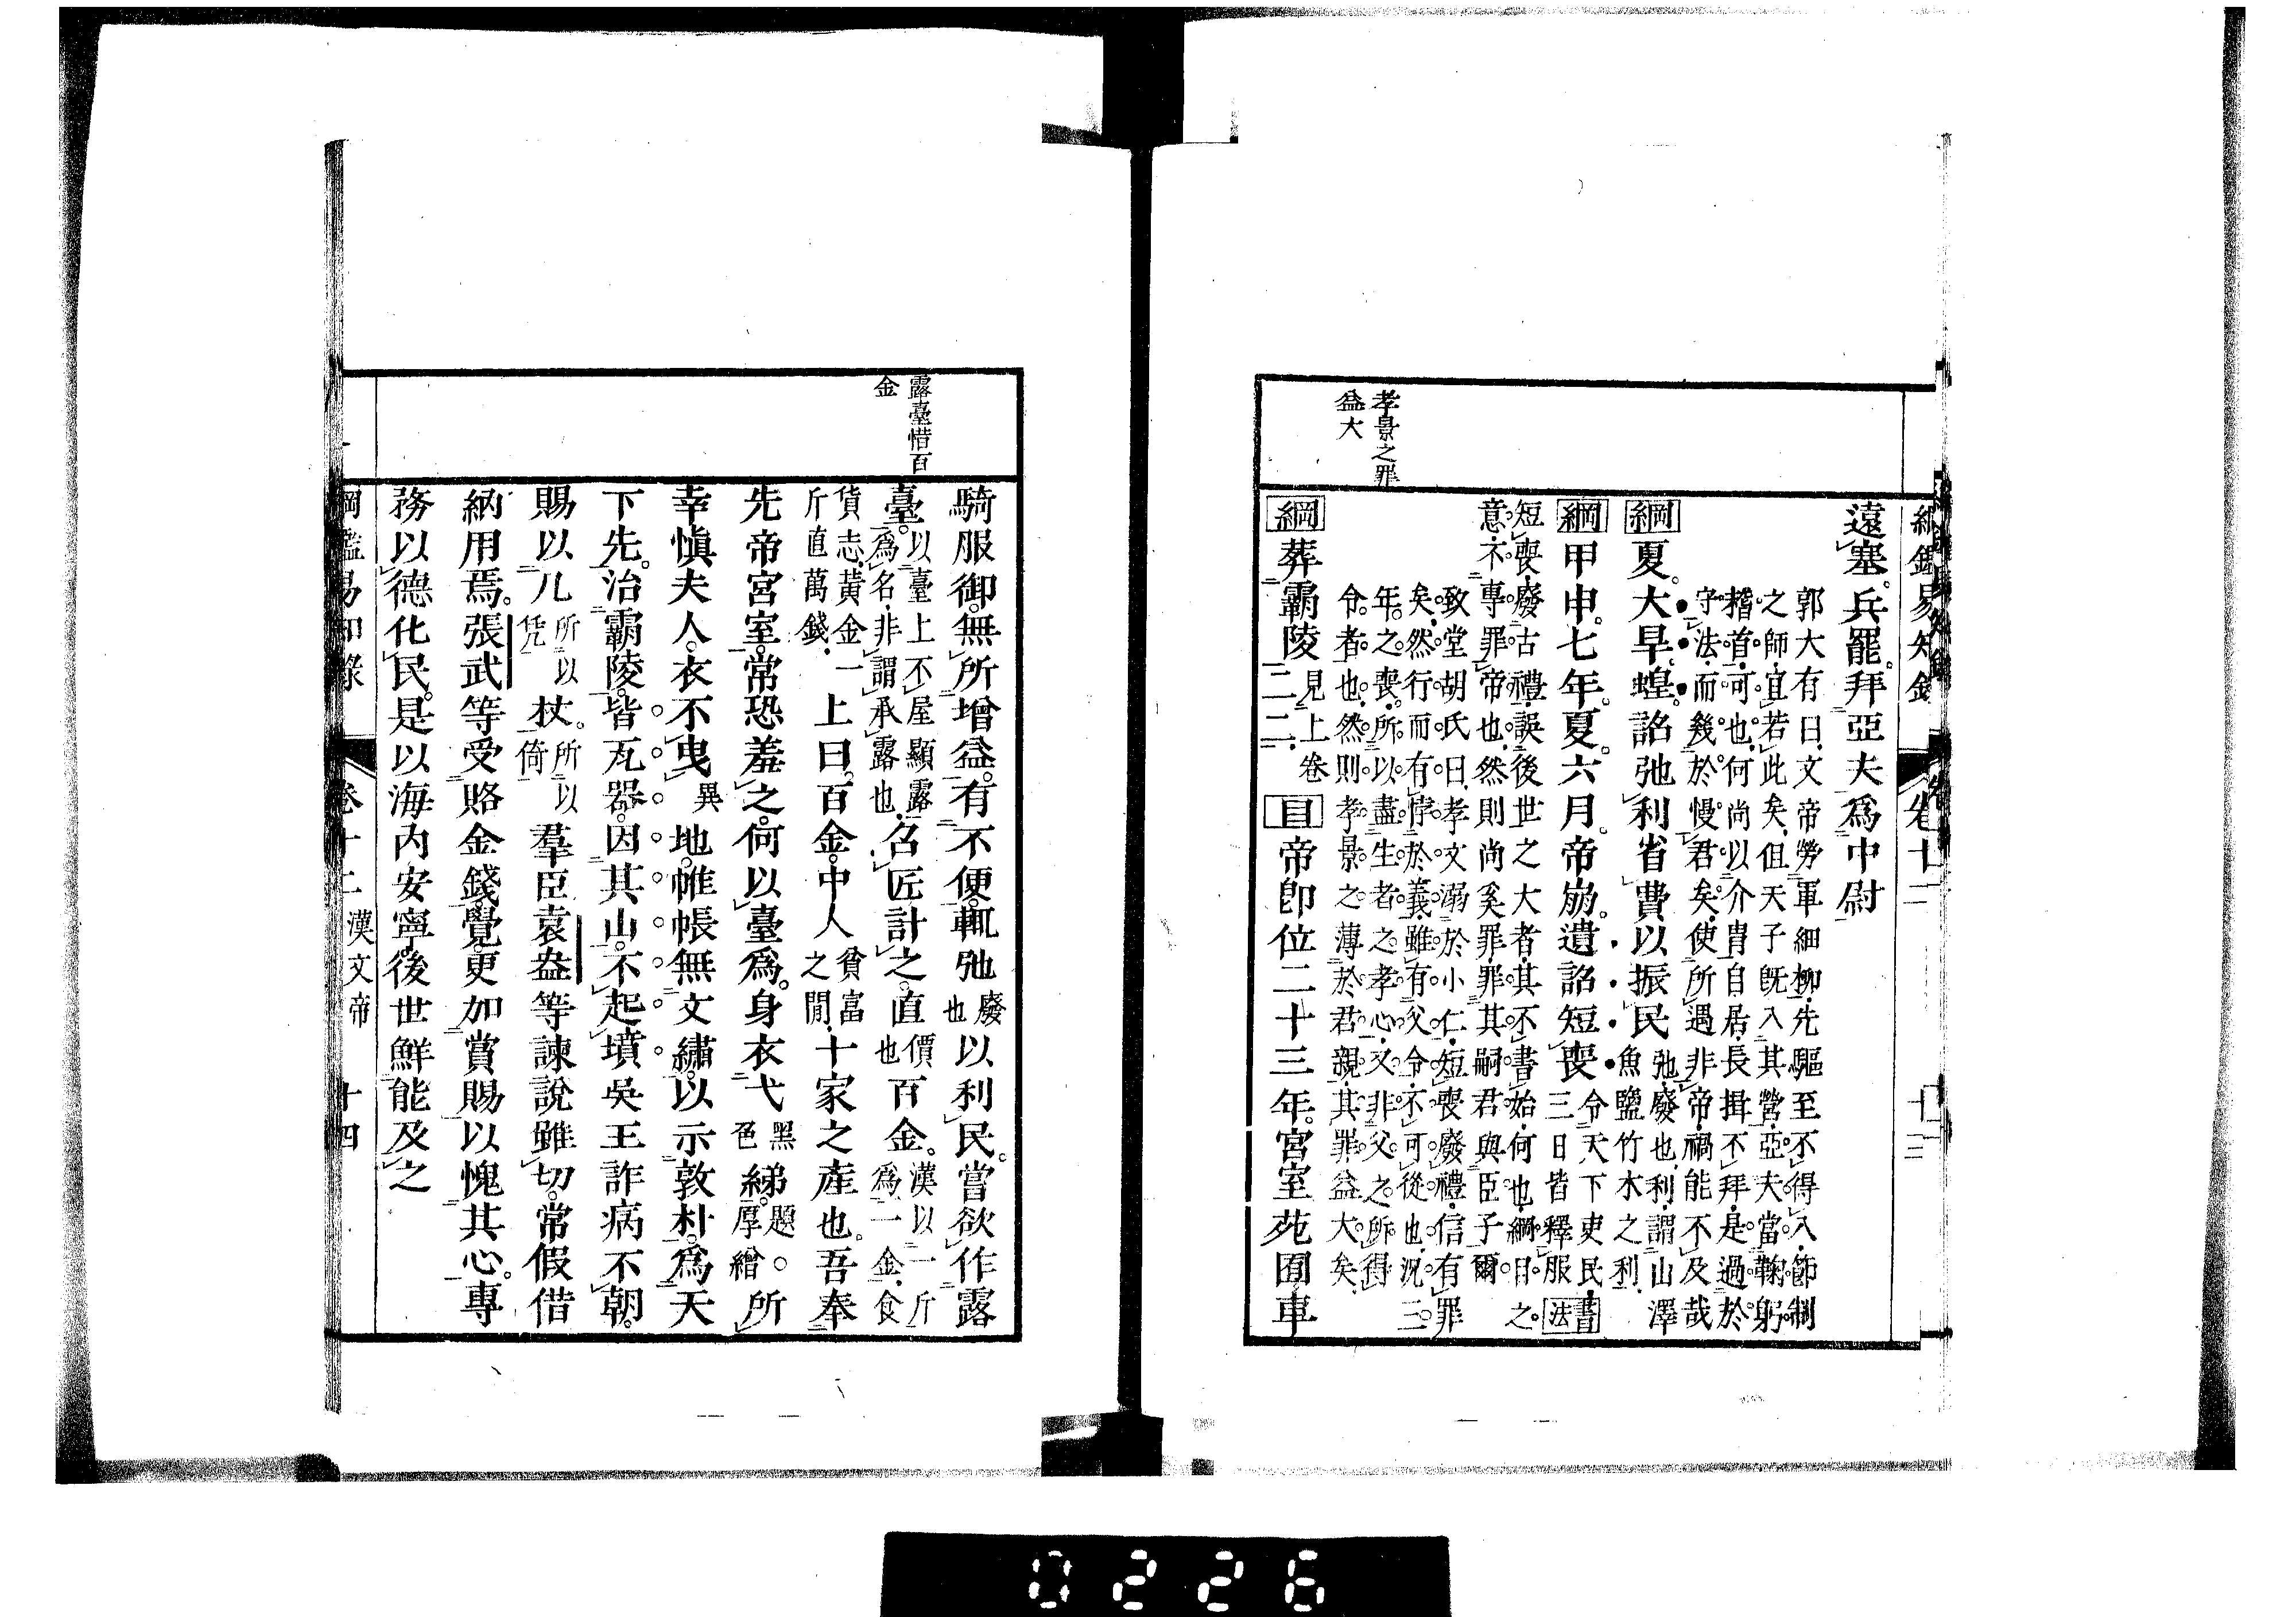 綱鑑易知錄 卷十二 十三
遠塞。兵罷。拜亞夫爲中尉
郭大有曰、文帝勞軍細柳、先驅至不得入、節制
之師、宜若此矣、但天子旣入其營、亞夫當鞠躬
稽首可也、何尚以介胄自居、長揖不拜、是過於
守法、而幾於慢君矣、使所遇非帝、禍能不及哉
綱夏。大旱。蝗。詔弛利省費以振民弛、廢也、利、謂山澤
魚鹽竹木之利、
綱甲申。七年。夏。六月。帝崩。遺詔短喪令天下吏民、
三日皆釋服書法
短喪、廢古禮、誤後世之大者、其不書始、何也、綱目之
意、不專罪帝也、然則尚奚罪、罪其嗣君與臣子爾
致堂胡氏曰、孝文溺於小仁、短喪廢禮、信有罪
矣、然行而有悖於義、雖有父令、不可從也、況三
年之喪、所以盡生者之孝心、又非父之所得
令者也、然則孝景之薄於君親、其罪益大矣、
孝景之罪
益大
綱葬霸陵見上卷
二二、目帝卽位二十三年。宮室苑囿車
騎服御。無所增益。有不便。輒弛廢也以利民。嘗欲作露
露臺惜百
金
臺。以臺上不屋顯露
爲名、非謂承露也、召匠計之。直價也百金。漢以一斤
爲一金、食
貨志、黃金一
斤直萬錢、上曰。百金。中人貧富
之閒、十家之產也。吾奉
先帝宮室。常恐羞之。何以臺爲。身衣弋黑色綈。題○
厚繒所
幸愼夫人。衣不曳異地。帷帳無文繡。以示敦朴。爲天
下先。治霸陵。皆瓦器。因其山。不起墳。吳王詐病不朝。
賜以几所以
凭杖。所以
倚羣臣袁盎等諫說雖切。常假借
納用焉。張武等受賂金錢。覺更加賞賜以愧其心。專
務以德化民。是以海內安寧。後世鮮能及之
綱鑑易知錄 卷十二 漢文帝 十四
0226